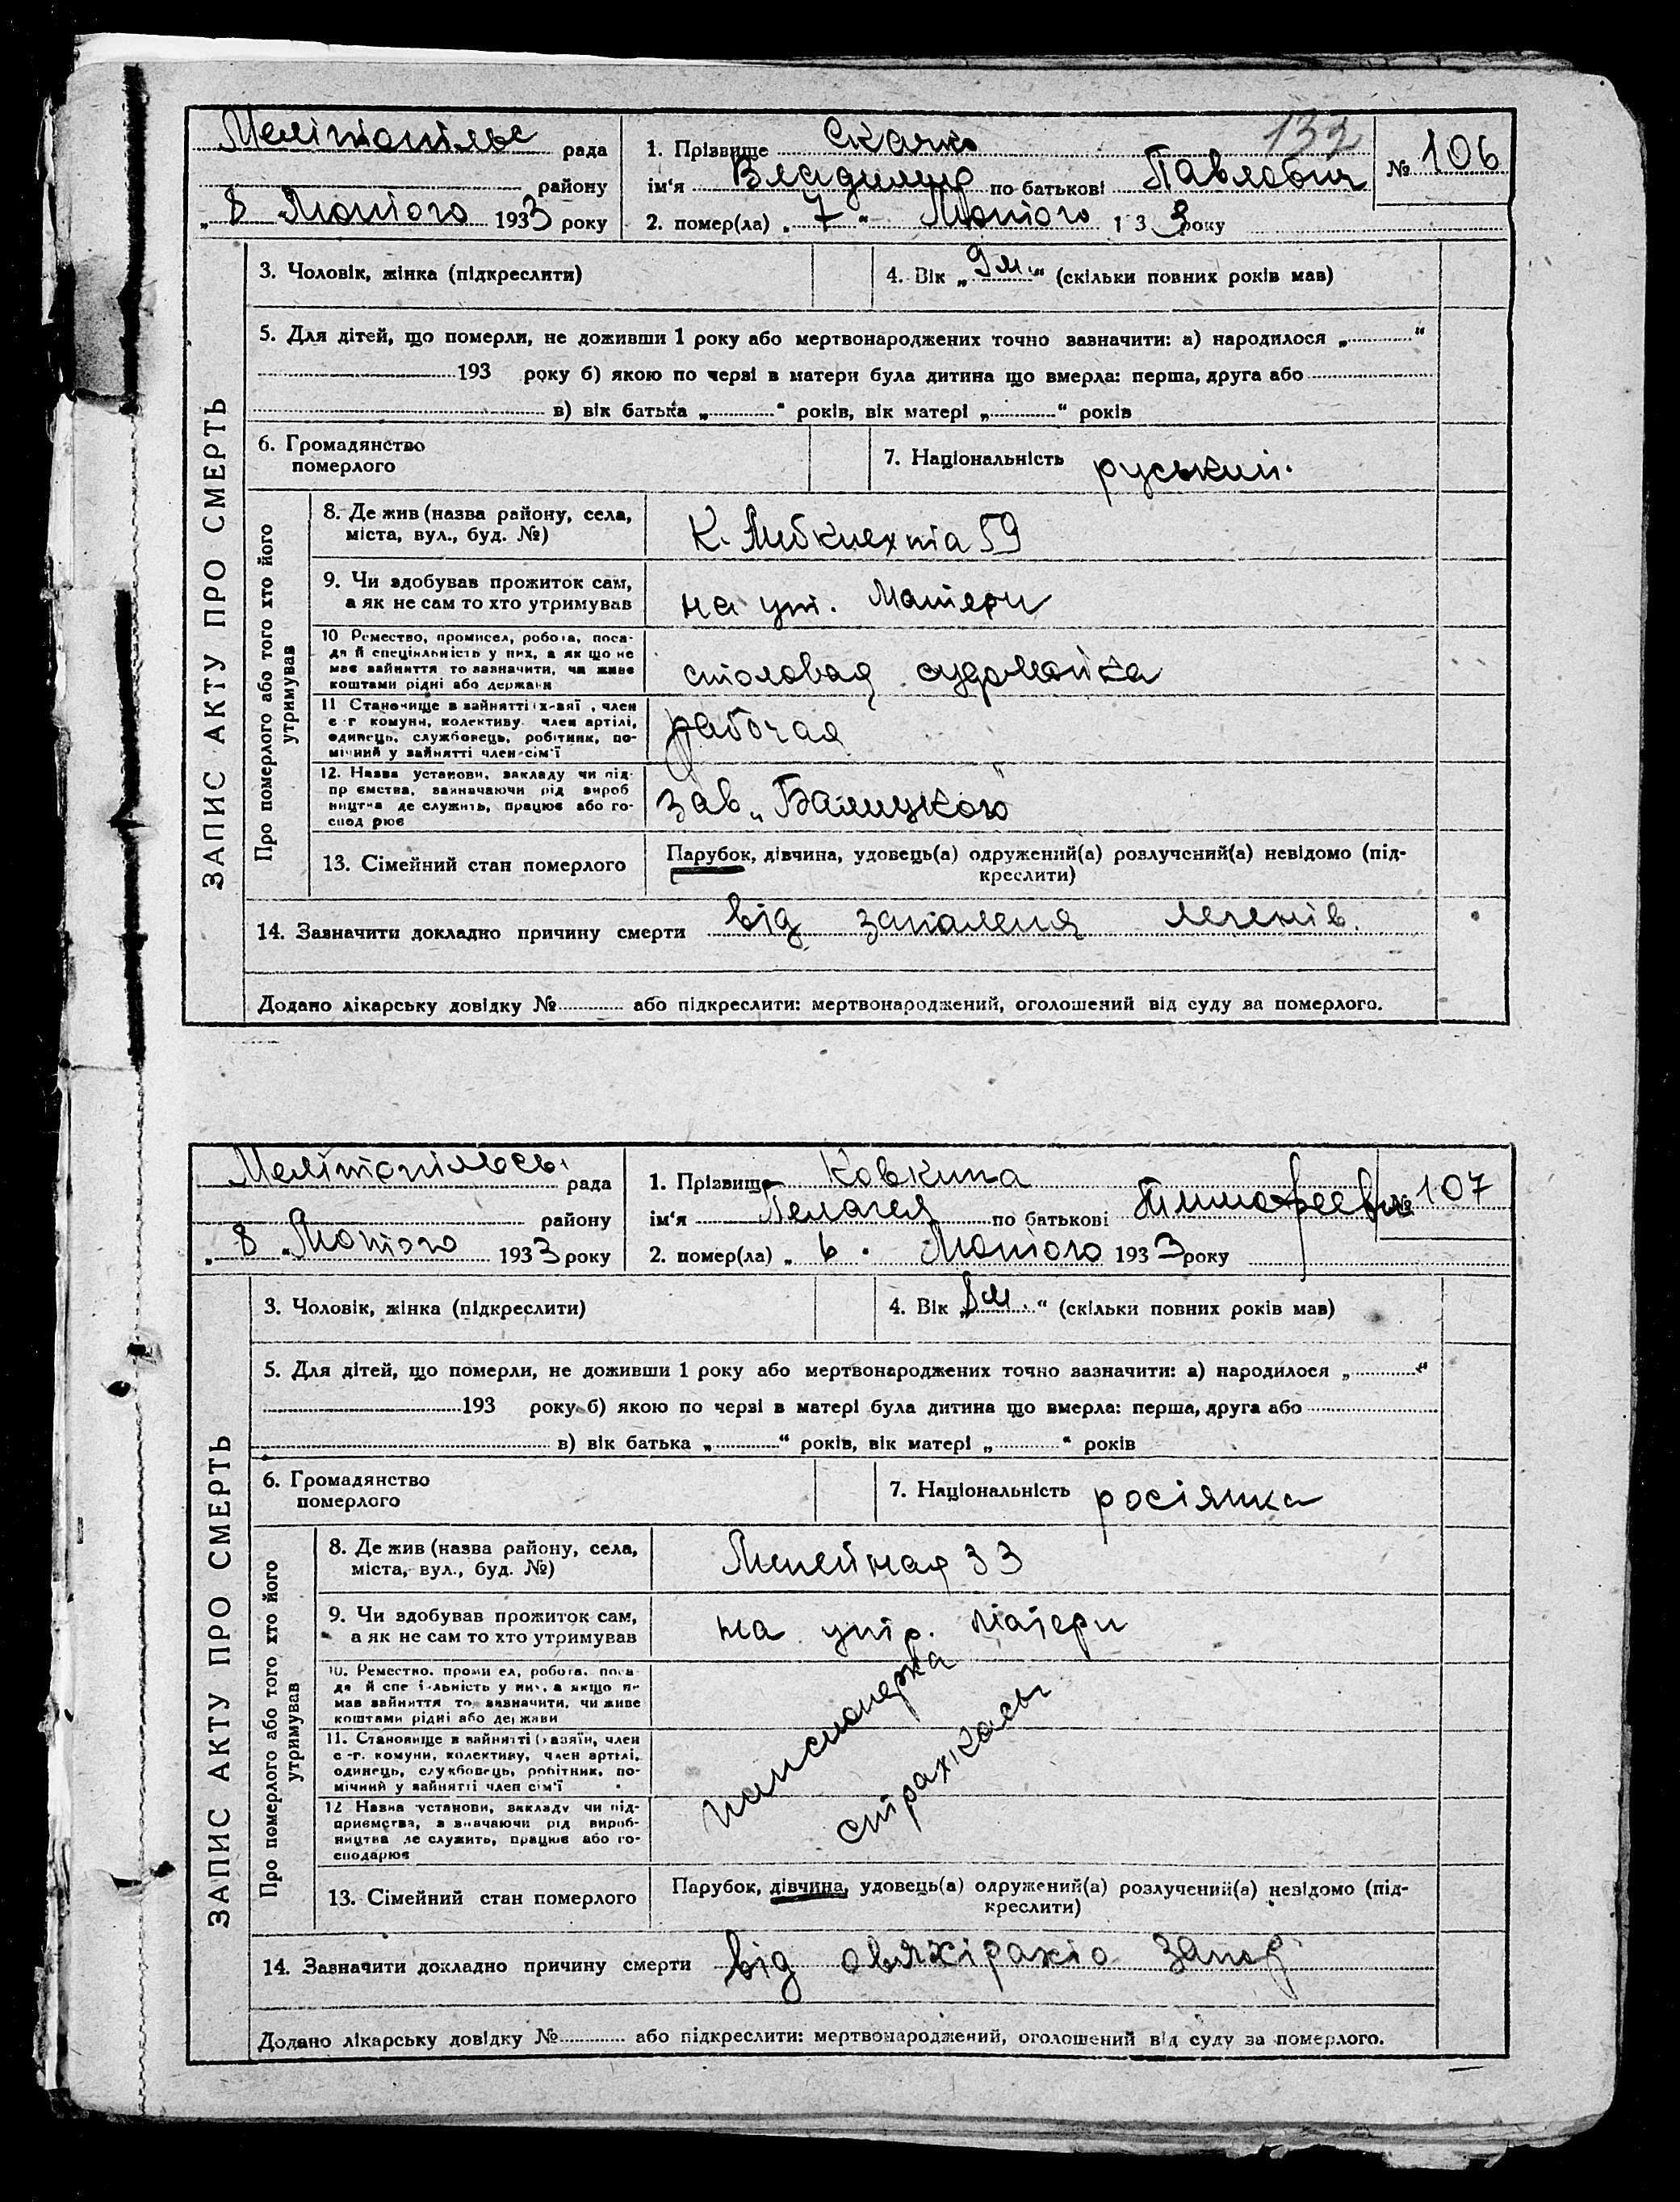 132
Мелітопільс рада
району
„ 8 Лютого 1933 року
1. Прізвище Скачко
ім'я Владимир по батькові Павлович
№ 106
2. помер(ла) „ 7 “ Лютого 1 3 3 року
ЗАПИС АКТУ ПРО СМЕРТЬ
3. Чоловік, жінка (підкреслити)
4. Вік „ 9 м. “ (скільки повних років мав)
5. Для дітей, що померли, не доживши 1 року або мертвонароджених точно зазначити: а) народилося „ “
193 року б) якою по черві в матери була дитина що вмерла: перша, друга або
в) вік батька „ “ років, вік матері „ “ років
6. Громадянство
померлого
7. Національність руський.
Про померлого або того хто його
утримував
8. Де жив (назва району, села,
міста, вул., буд. №)
К. Либкнехта 59
9. Чи здобував прожиток сам,
а як не сам то хто утримував
на ут. Матери
10 Ремество, промисел, робота, поса-
да й спеціяльність у них, а як що не
має зайняття то зазначити, чи живе
коштами рідні або держави
столовая судомойка
11 Становище в зайнятті , член
с-г комуни, колективу член артілі,
одинець, службовець, робітник, по-
мічний у зайнятті член сім'ї
рабочая
12. Назва установи, закладу чи під-
пр ємства, зазначаючи рід вироб
ництва де служить, працює або го-
спод рює
зав „Балицкого“
13. Сімейний стан померлого
Парубок, дівчина, удовець(а) одружений(а) розлучений(а) невідомо (під-
креслити)
14. Зазначити докладно причину смерти від запаленя легенів.
Додано лікарську довідку № або підкреслити: мертвонароджений, оголошений від суду за померлого.
Мелітопільсь рада
району
„ 8 „ Лютого 1933 року
1. Прізвище Ковкина
ім'я Пелагея по батькові
№ 107
2. помер(ла) „ 6 . Лютого 1933 року
ЗАПИС АКТУ ПРО СМЕРТЬ
3. Чоловік, жінка (підкреслити)
4. Вік „ 8 м. “ (скільки повних років мав)
5. Для дітей, що померли, не доживши 1 року або мертвонароджених точно зазначити: а) народилося „ “
193 року б) якою по черзі в матері була дитина що вмерла: перша, друга або
в) вік батька „ “ років, вік матері „ “ років
6. Громадянство
померлого
7. Національність росіянка
Про померлого або того хто його
утримував
8. Де жив (назва району, села,
міста, вул., буд. №)
Линейная 33
9. Чи здобував прожиток сам,
а як не сам то хто утримував
на утр. матери
10. Ремество, проми ел, робота, поса-
да й спе і-льність у них, а якщо н-
мав зайняття то зазначити, чи живе
коштами рідні або держави
11. Становище в зайнятті (хазяїн, член
с-г. комуни, колективу, член артілі,
одинець, службовець, робітник, по-
мічний у зайнятті член сім'ї
12 Назва установи, закладу чи під-
приємства, з значаючи рід вироб-
ництва де служить, працює або го-
сподарює
пансионерка
страхкасы
13. Сімейний стан померлого
Парубок, дівчина, удовець(а) одружений(а) розлучений(а) невідомо (під-
креслити)
14. Зазначити докладно причину смерти від
Додано лікарську довідку № або підкреслити: мертвонароджений, оголошений від суду за померлого.